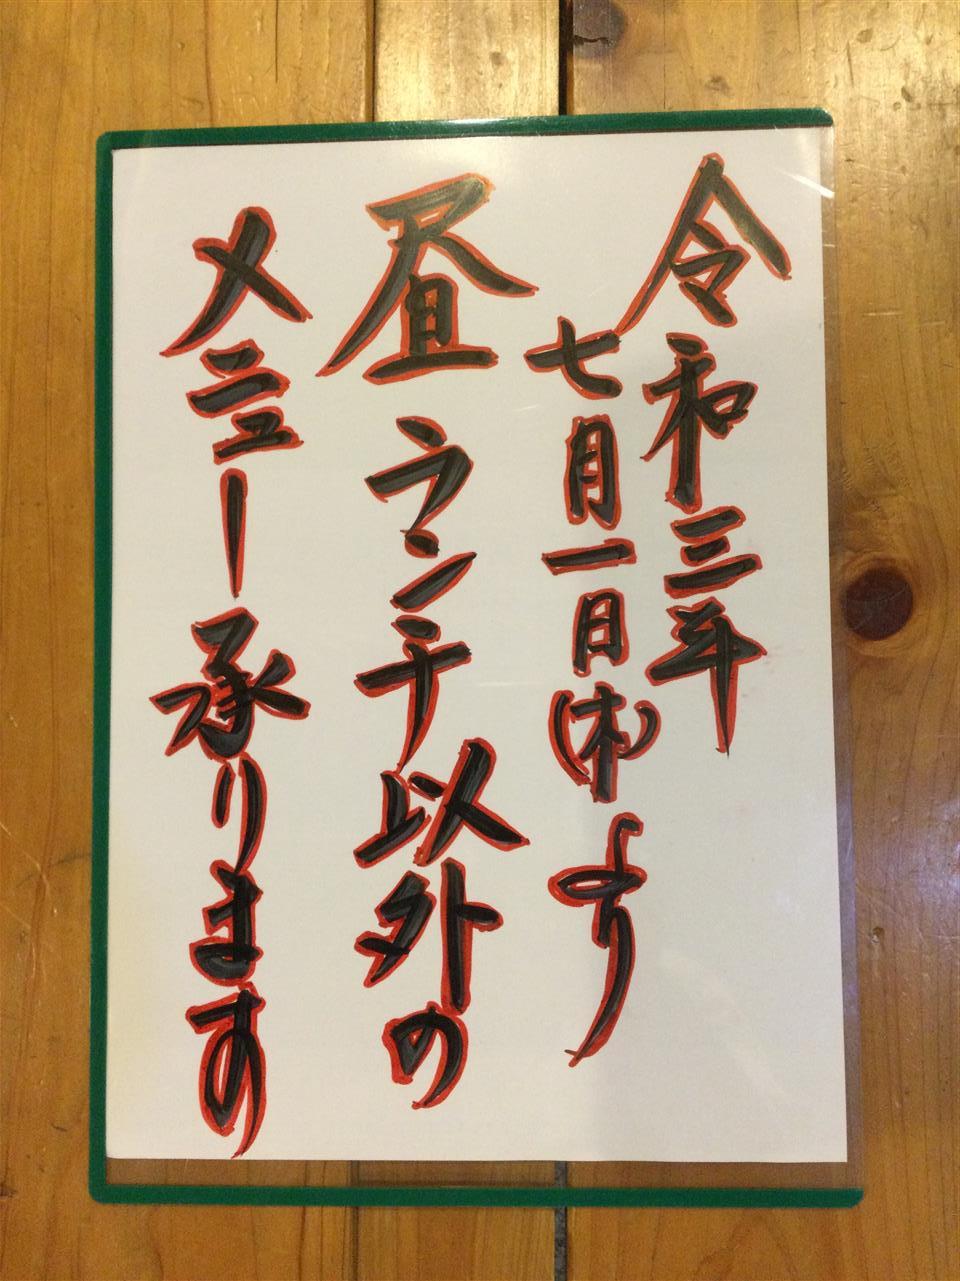 令和三年
七月一日(木)より
昼ランチ以外の
メニュー承ります